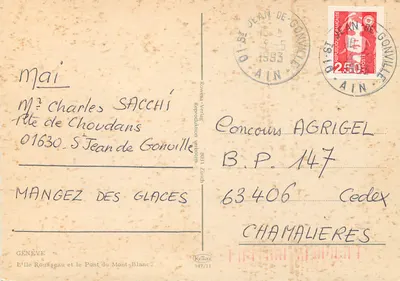 Mai
Mr Charles SACCHI
Rte de Choudans
01630 St Jean de Gonville
MANGEZ DES GLACES
GENÈVE
L'Ile Rousseau et le Pont du Mont-Blanc
01-ST JEAN-DE-GONVILLE
1993
AIN
2,50
01-ST JEAN-DE-GONVILLE
AIN
Concours AGRIGEL
B.P. 147
63406 Cedex
CHAMALIERES